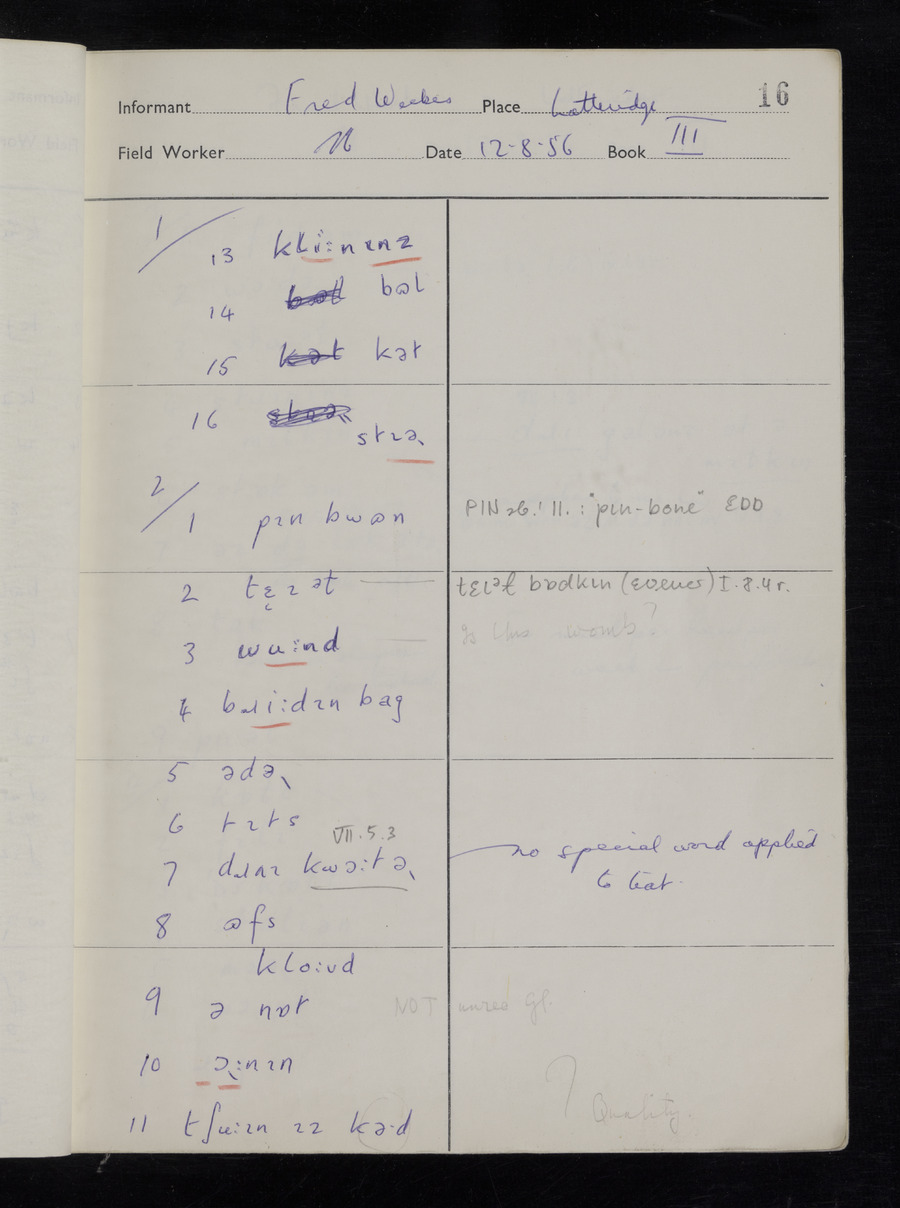 16
Informant Fred Weekes Place Latteridge
Field Worker N Date 12-8-56 Book III
1/ 13 kli:nɪnz
14 bəl
15 kət
16 stɪə
2/ 1 pɪn bwən PIN sb.¹ 11. : "pin-bone" EDD
2 tɛɪət tɛɪət bɒdkɪn (evener) I.8.4r.
3 wu:nd Is this womb?
4 bɹi:dɪn bag
5 ədə
6 tɪts
VII.5.3
7 dɹaɪ kwə:tə no special word applied
to teat.
8 əfs
klo:ud
9 ə nɒt NOT unred gl.
10 ɔ:nɪn
11 tʃu:ɪn ɪz kə·d ? Quality.